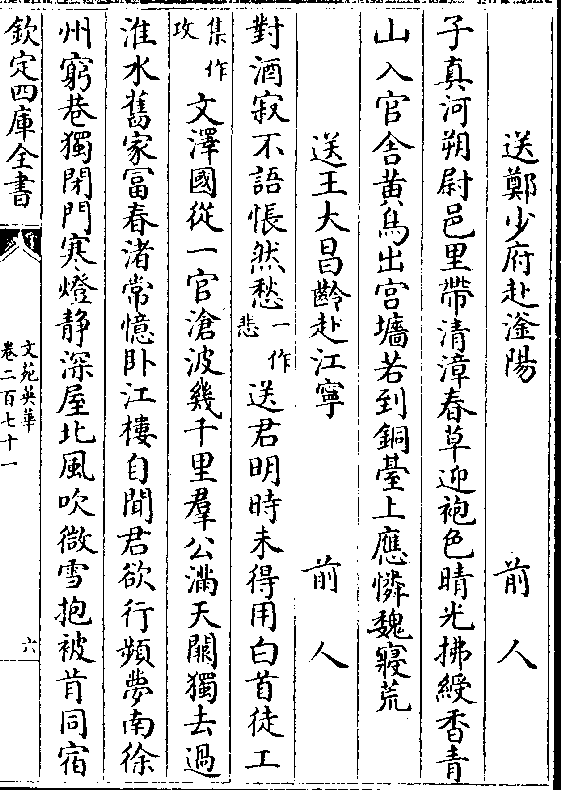 送鄭少府赴滏陽 前人
子真河朔尉邑里帶清漳春草迎袍色晴光拂綬香青
山入官舍黃鳥出宫墻若到銅臺上應憐魏寢荒
送王大昌齡赴江寧 前人
對酒寂不語悵然愁一作悲送君明時未得用白首徒工
集作攻文澤國從一官滄波幾千里羣公滿天闕獨去過
淮水舊家富春渚常憶卧江樓自聞君欲行頻夢南徐
州窮巷獨閉門寒燈静深屋北風吹微雪抱被肯同宿
欽定四庫全書
文苑英華
卷二百七十一
六